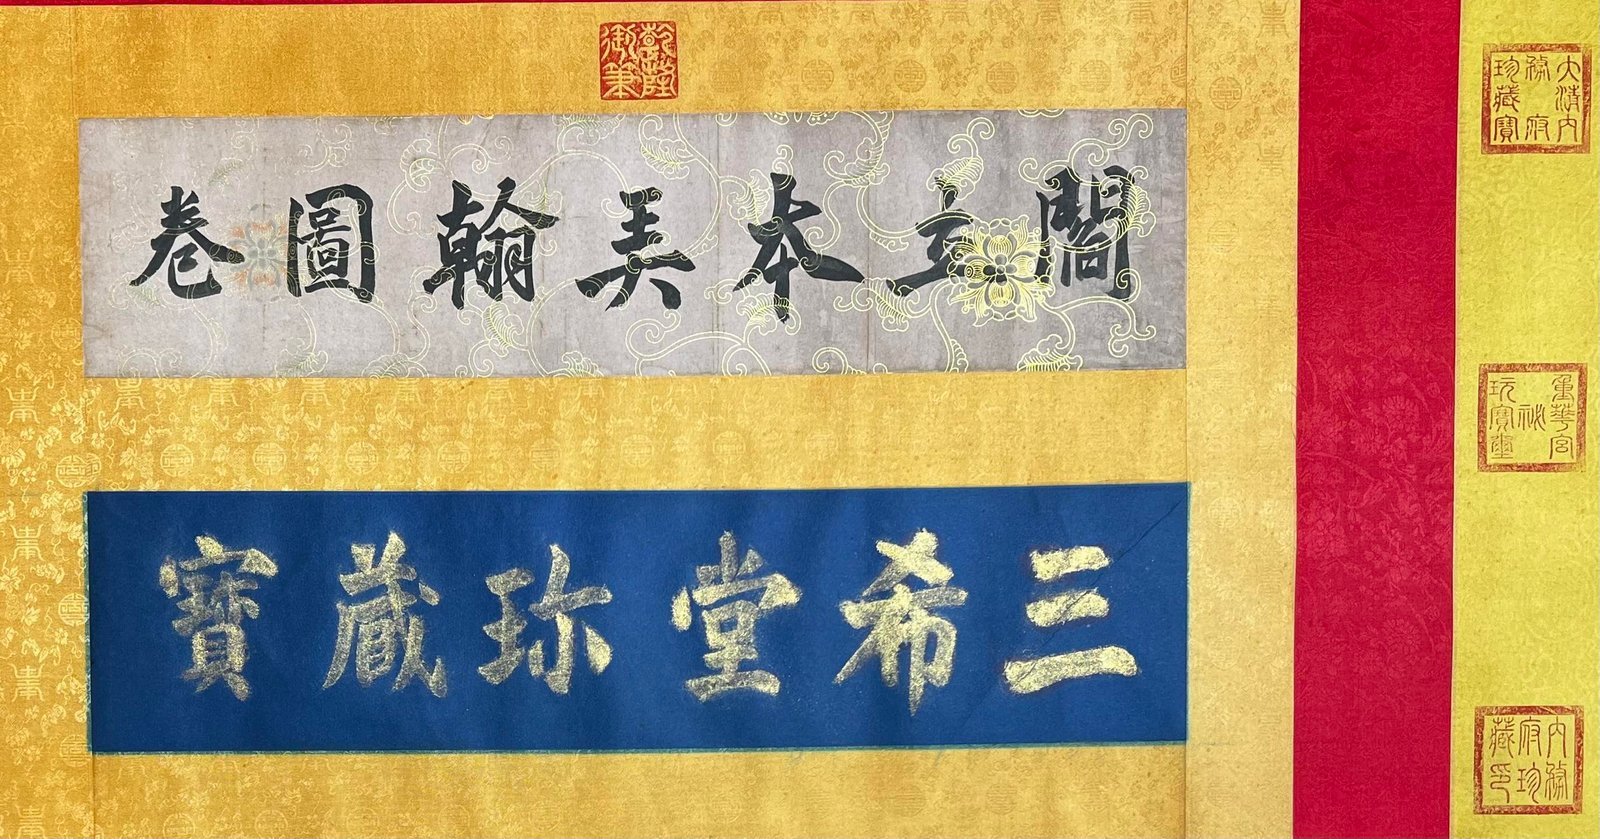 乾隆御筆
閻立本美翰圖卷
三希堂珎藏寶
大清内務府珍藏寶
重華宮祕玩寶璽
内務府珍藏印